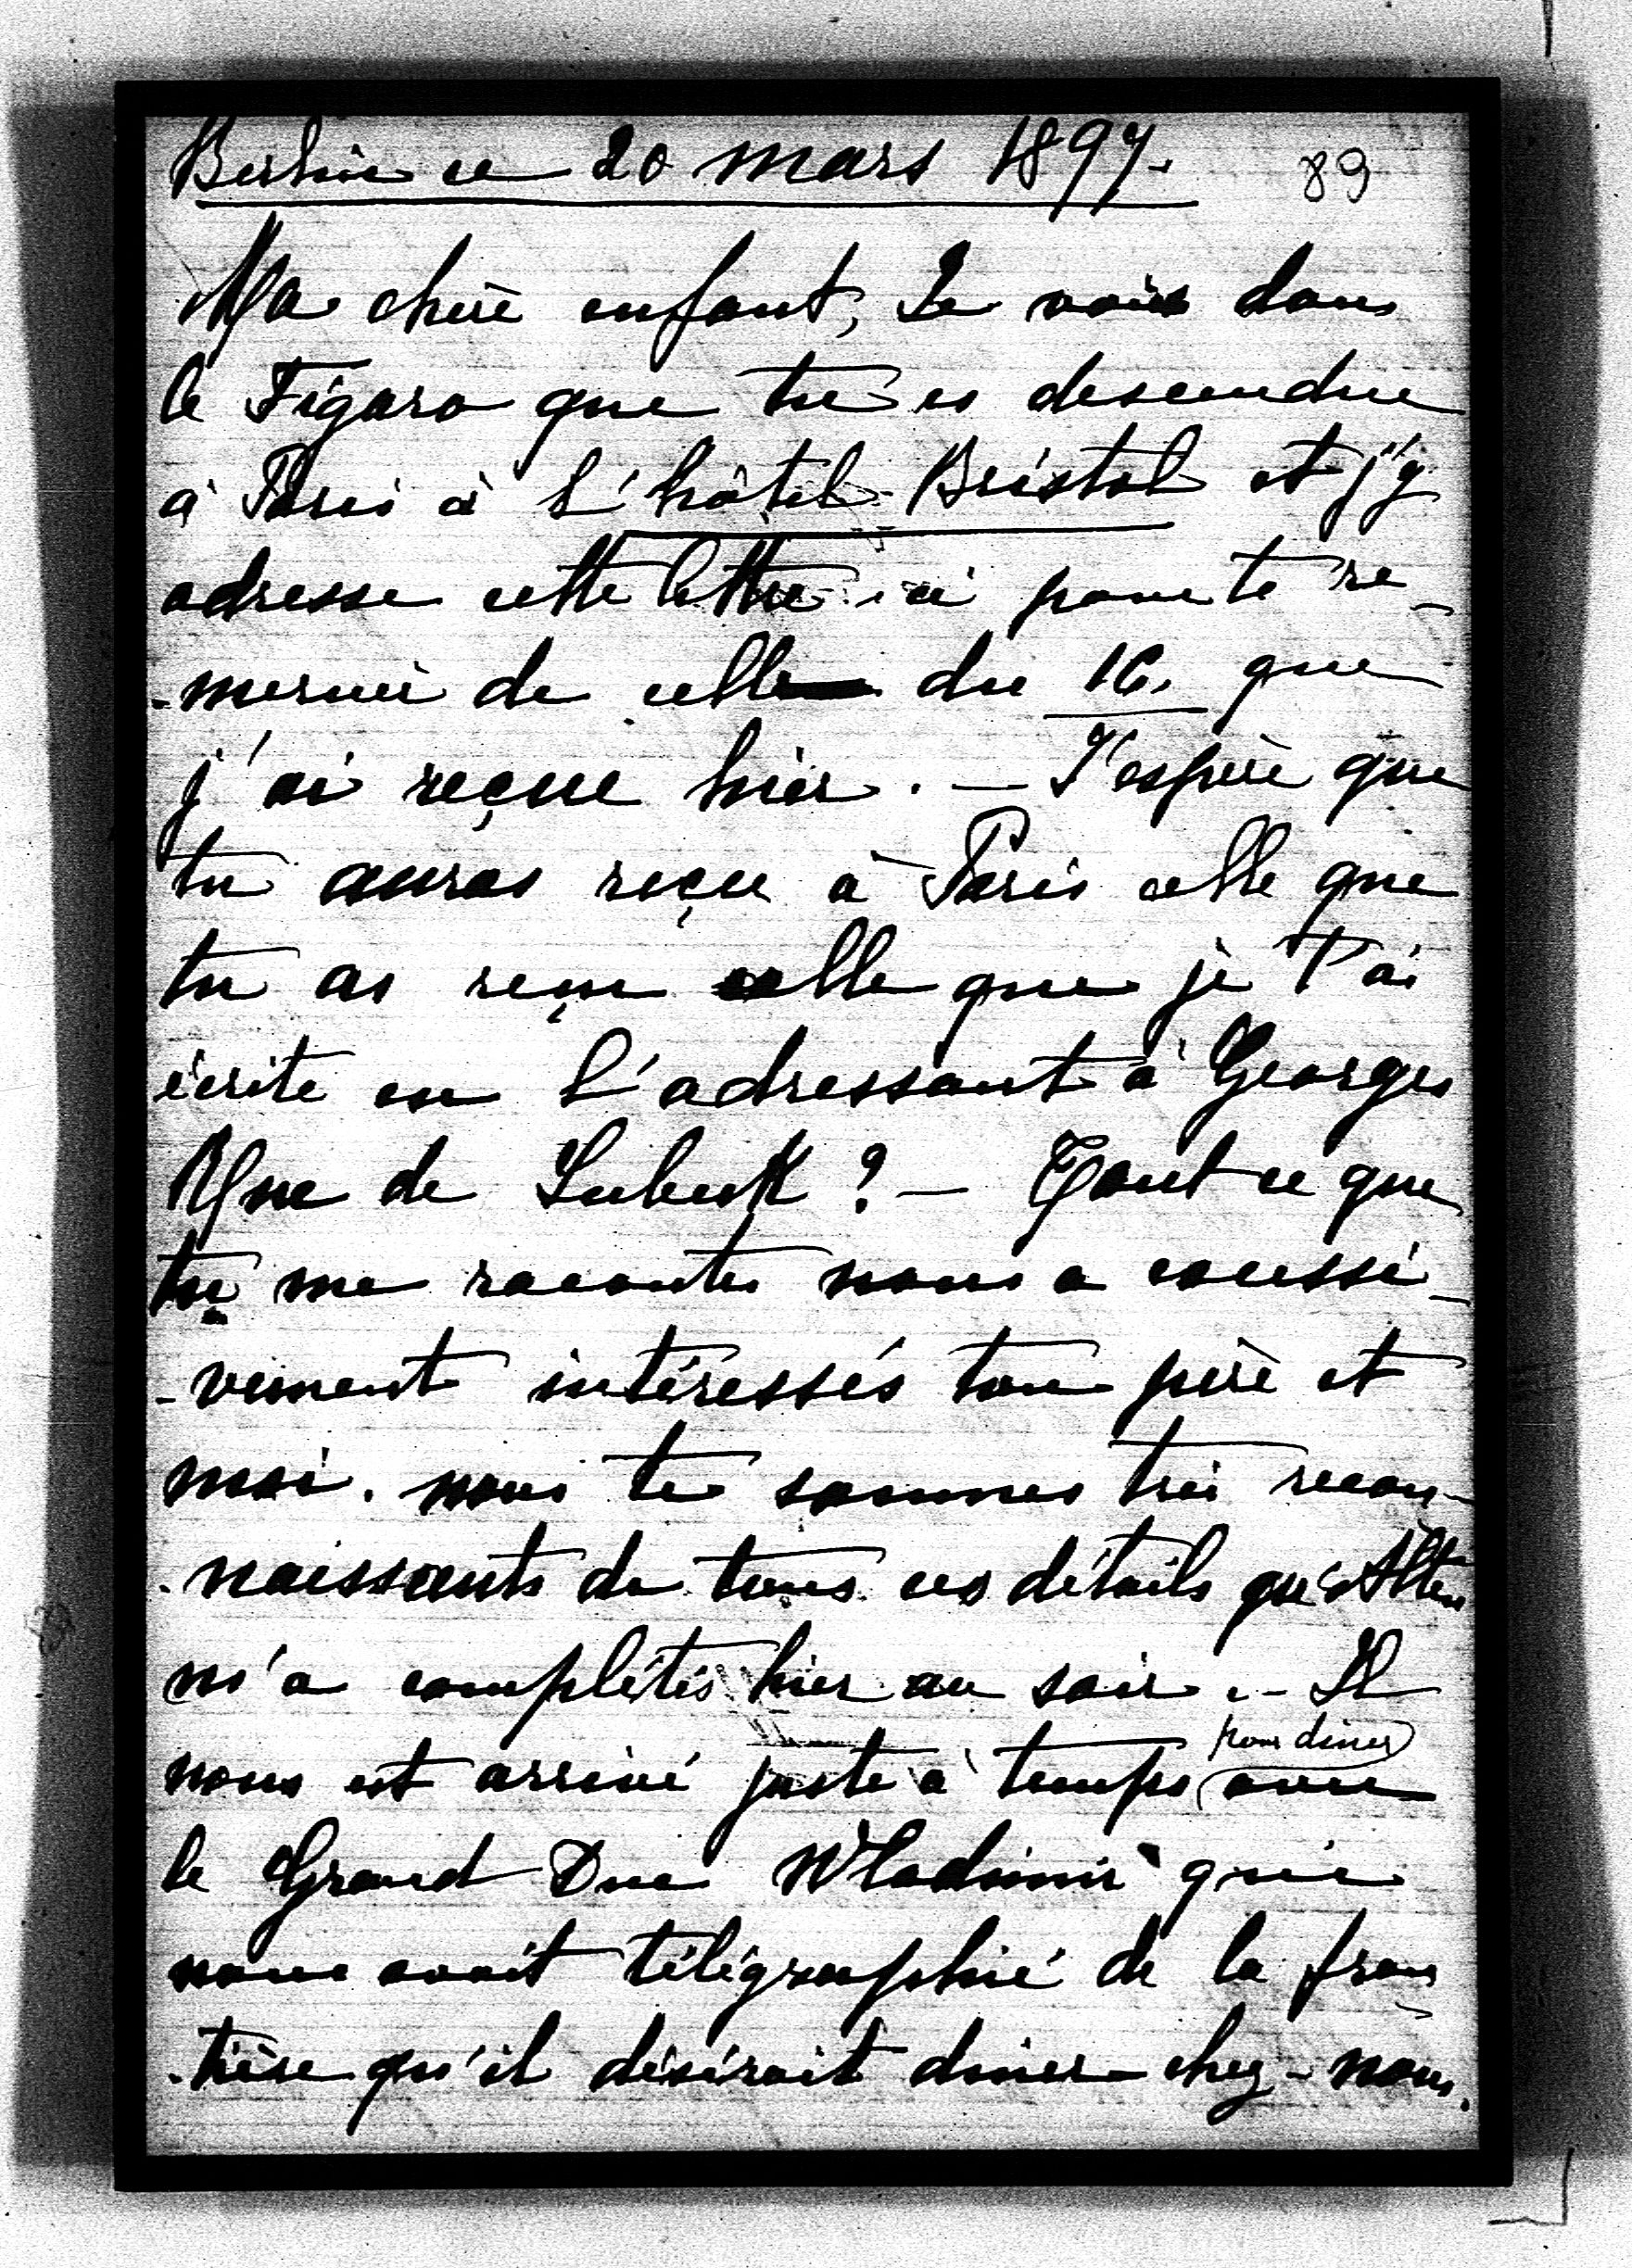 Berlin ce 20 mars 1897. 89
Ma chère enfant, Je vois dans
le Figaro que tu es descendue
à Paris à l'hôtel Bristol et j'y
adresse cette lettre-ci pour te re-
-mercier de celle du 16. que
j'ai reçue hier. — J'espère que
tu auras reçu à Paris celle que
tu as reçu celle que je t'ai
écrite en l'adressant à Georges
Mne de Lubeck ? — Tout ce que
tu me racontes nous a excessi-
-vement intéressés ton père et
moi. nous te sommes très recon-
-naissants de tous ces détails qu'Alten
m'a complétés hier au soir. — Il
pour diner
nous est arrivé juste à temps avec
le Grand Duc Wladimir qui
nous avait télégraphié de la fron
-tière qu'il désirait diner chez-nous.